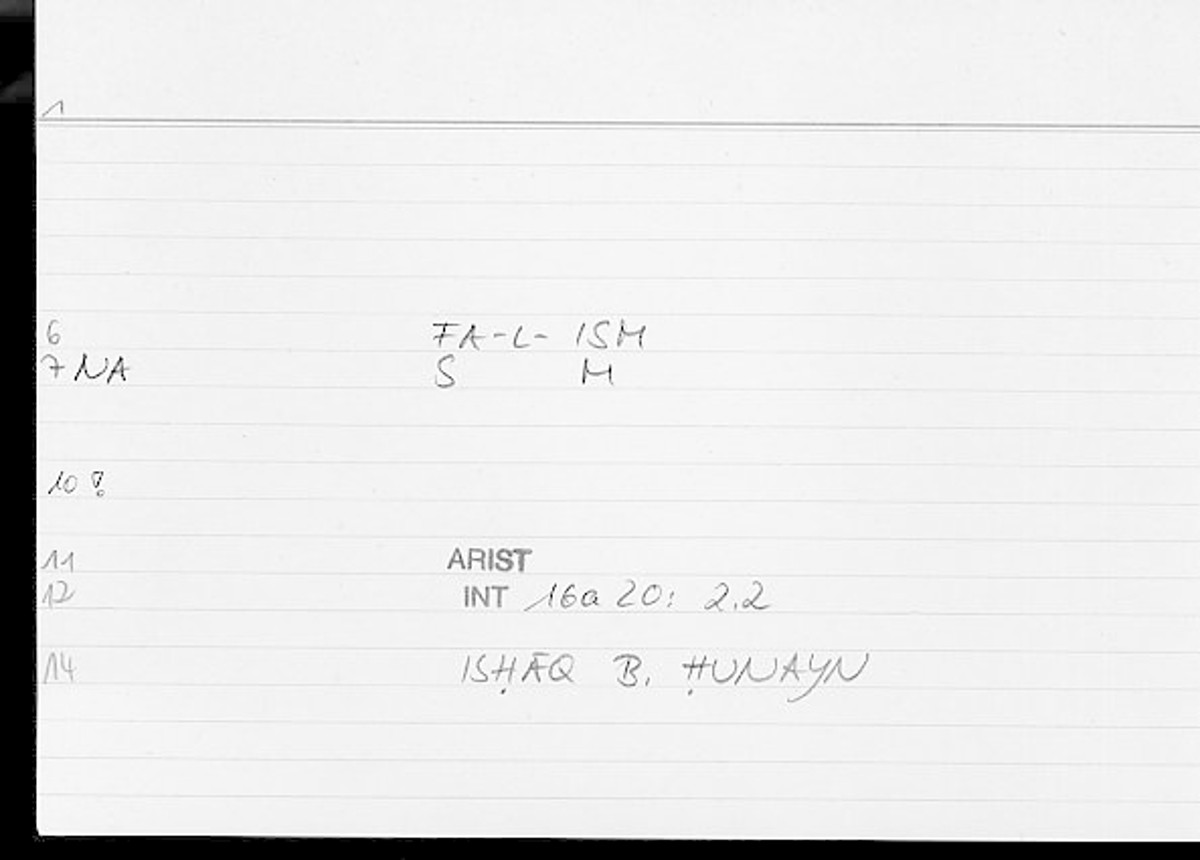 1
6 FA-L- ISM
7 NA S M
10 !
11 ARIST
12 INT 16a 20: 2.2
14 ISḤĀQ B. ḤUNAYN